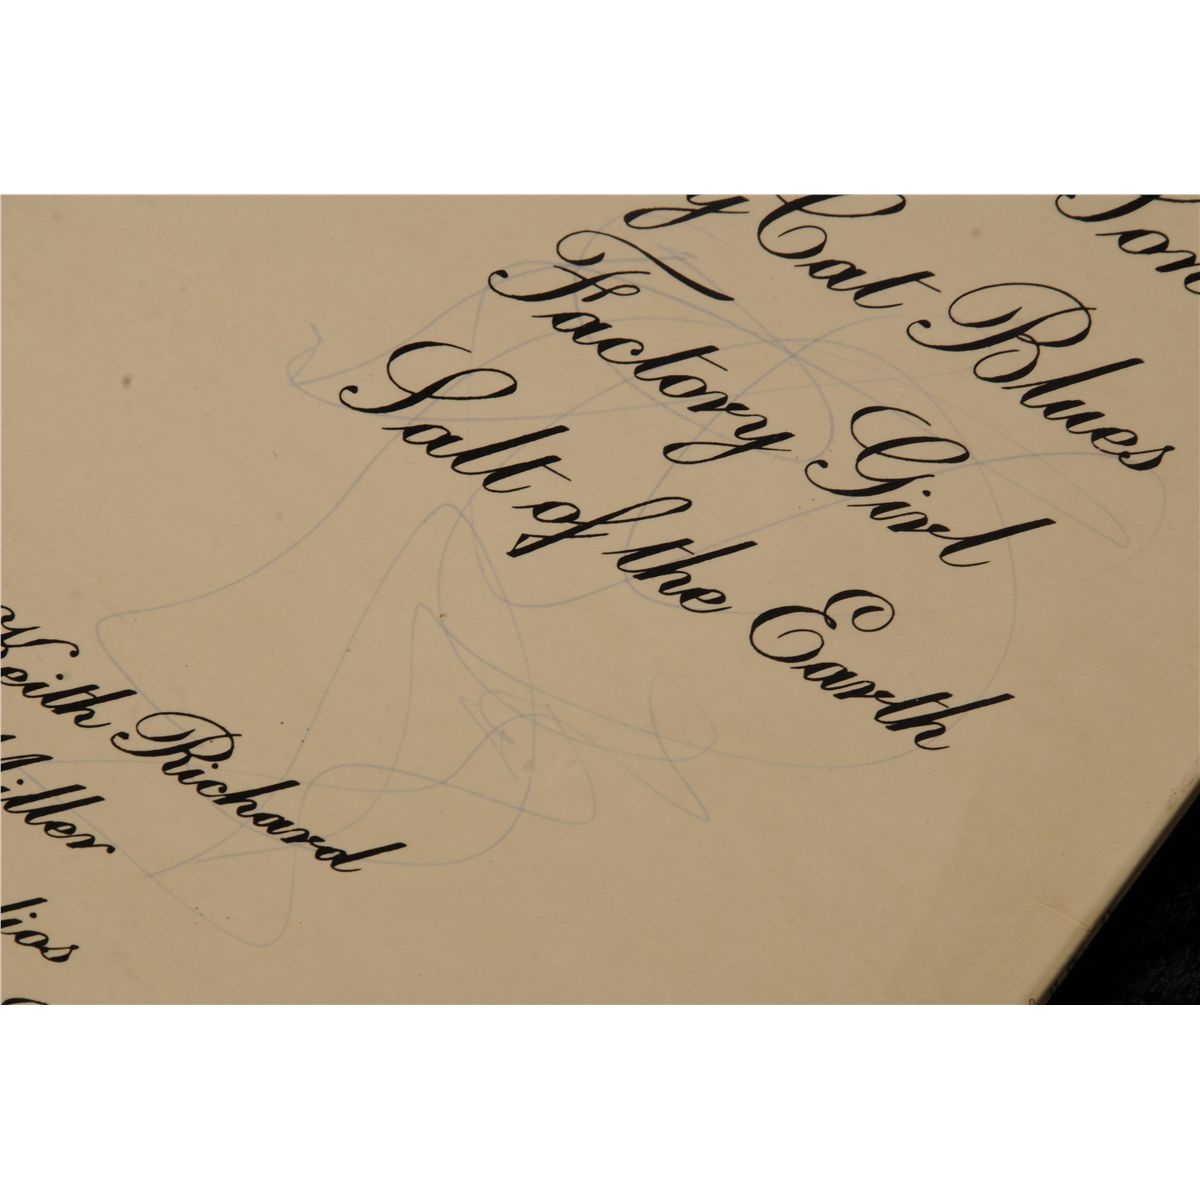 Cat Blues
Factory Girl
Salt of the Earth
Keith Richard
Miller